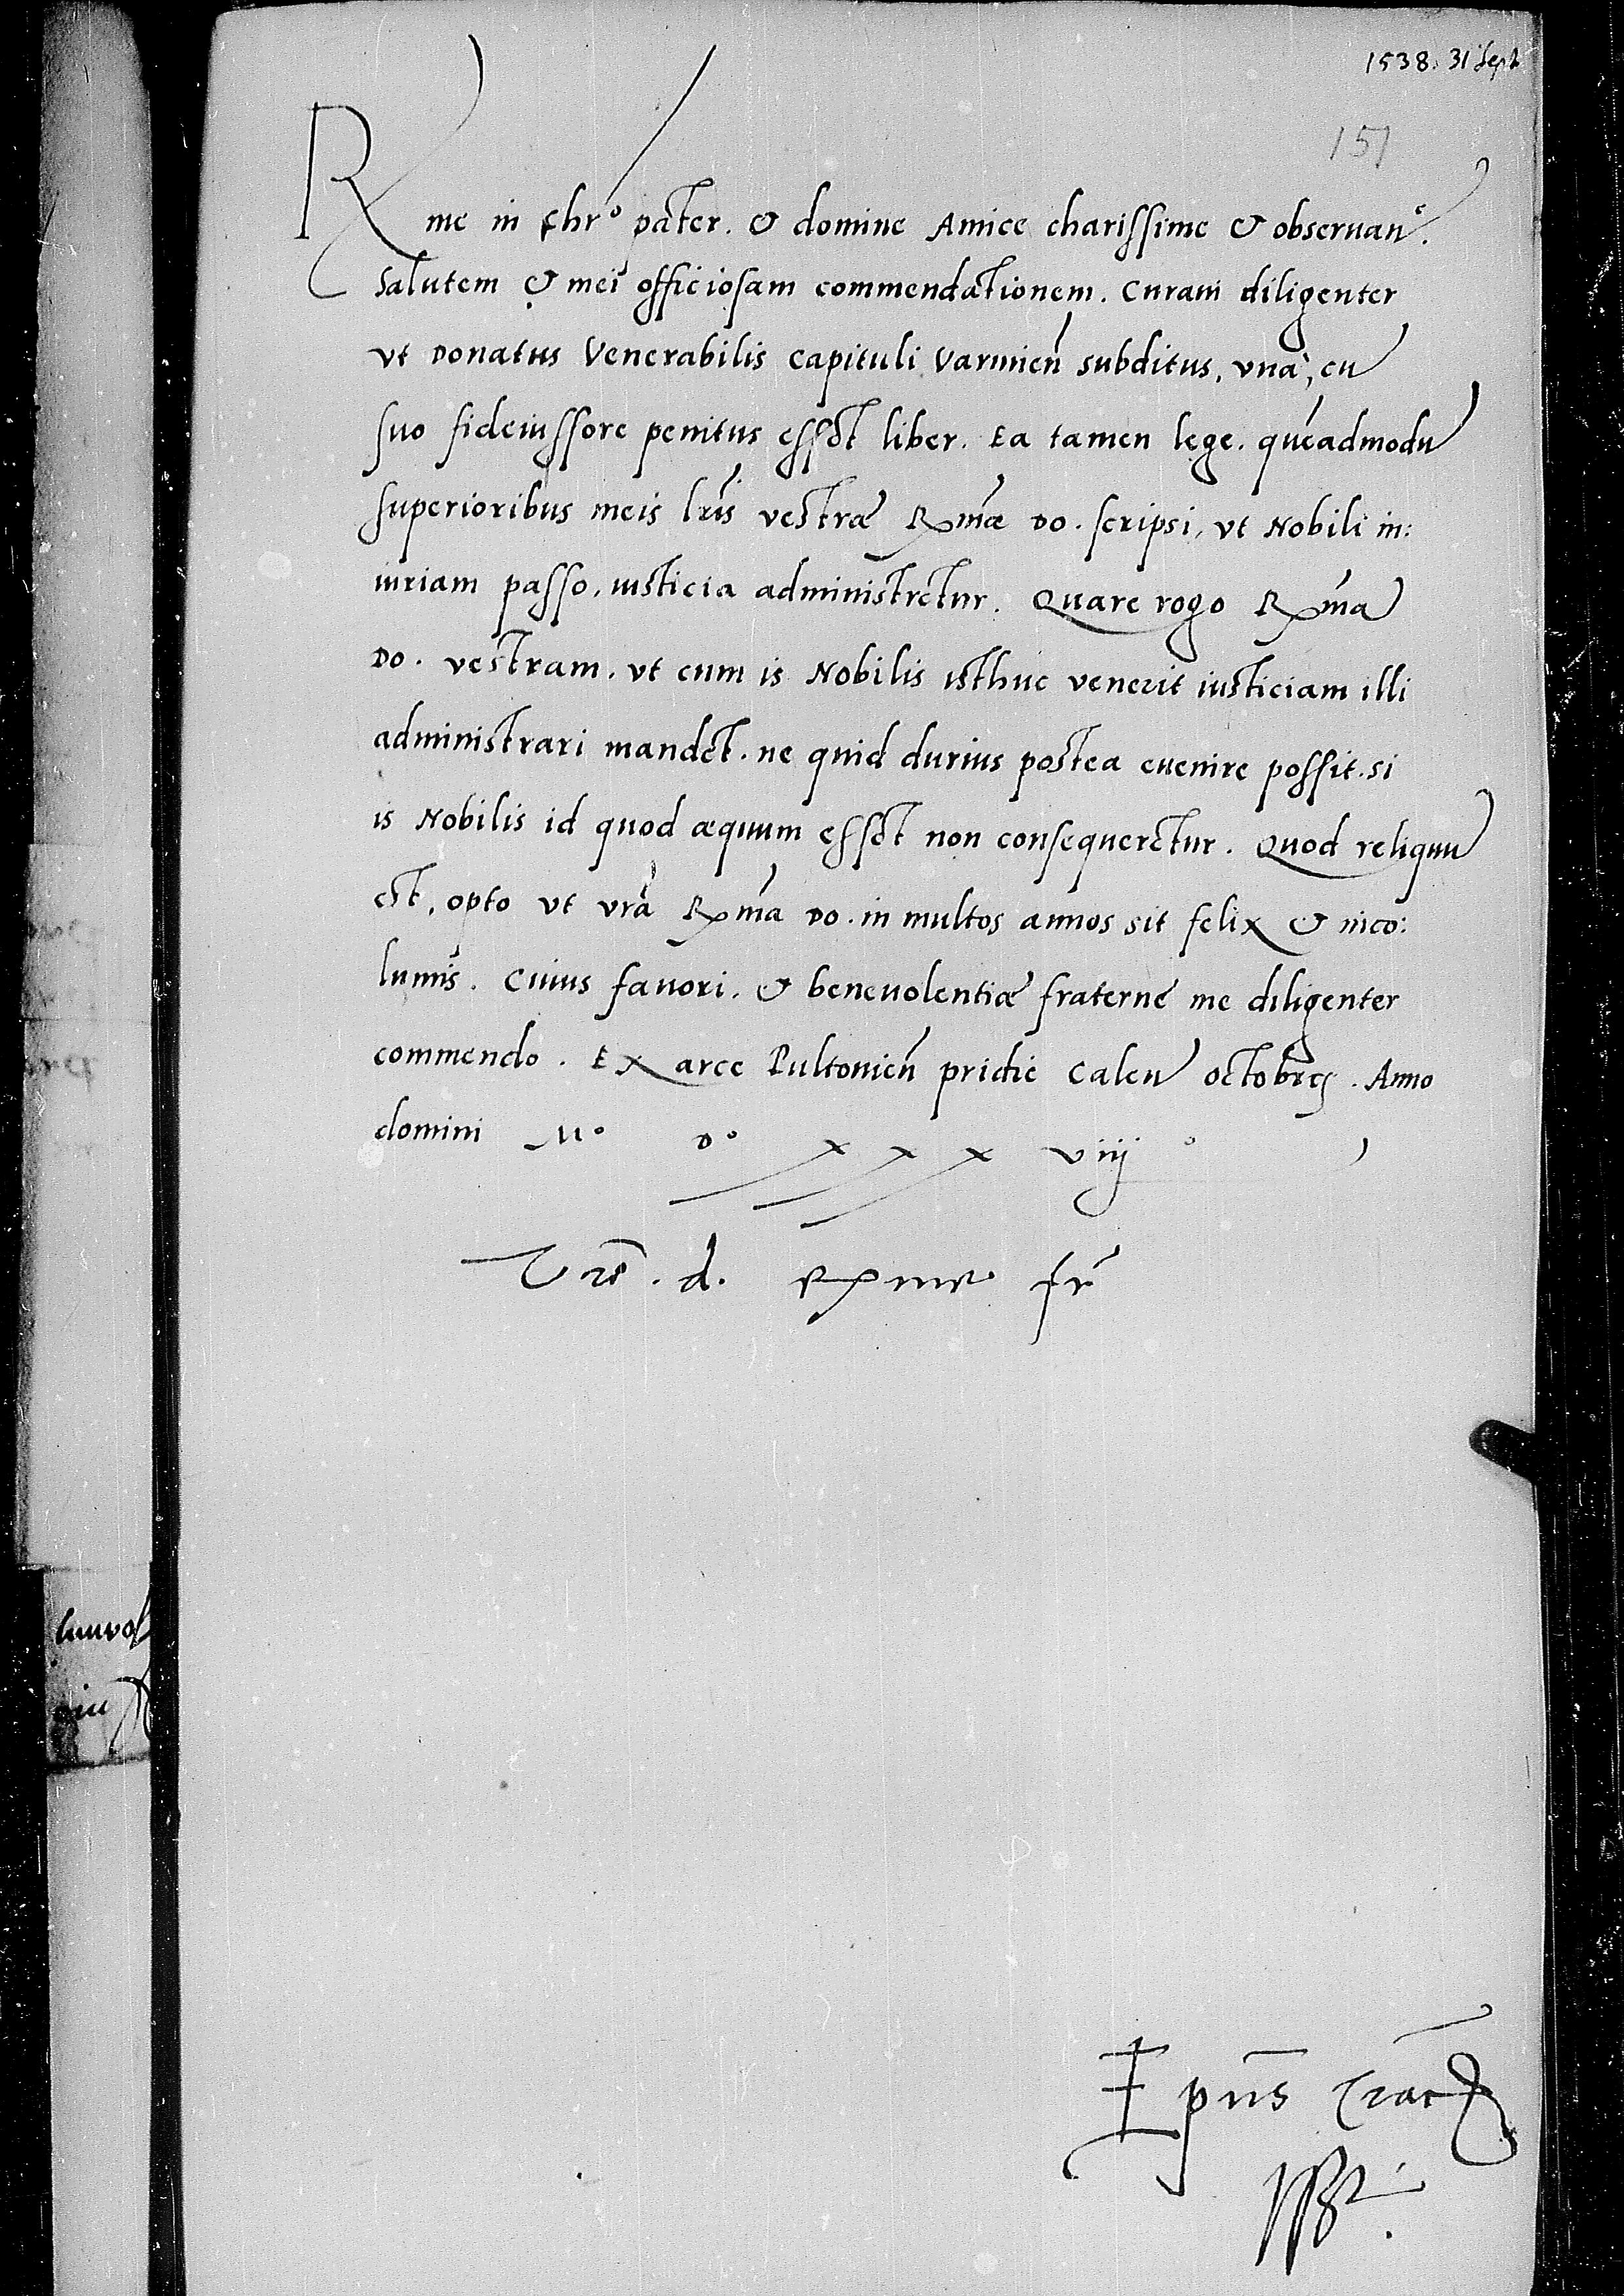 1538. 31 Sept
151
Rme in Chro pater. & domine Amice charissime & obseruan.
Salutem & mei officiosam commendationem. Curaui diligenter
vt Donatus Venerabilis Capituli Varmien subditus, vnà, cu
suo fideiussore penitus esset liber. Ea tamen lege. quéadmodu
superioribus meis lris vestræ Rmæ Do. scripsi, vt Nobili in:
iuriam passo, iusticia administretur. Quare rogo Rma
Do. vestram, vt cum is Nobilis isthuc venerit iusticiam illi
administrari mandet. ne quid durius postea euenire possit. si
is Nobilis id quod æquum esset non consequeretur. Quod reliquu
est, opto vt vra Rma Do. in multos annos sit felix & inco:
lumis. Cuius fauori. & beneuolentiæ fraternę me diligenter
commendo. Ex arce Pultouien pridie Calen Octobres. Anno
domini Mº Dº xxx viijº
Vre. d. Rme fr
Epus Crac